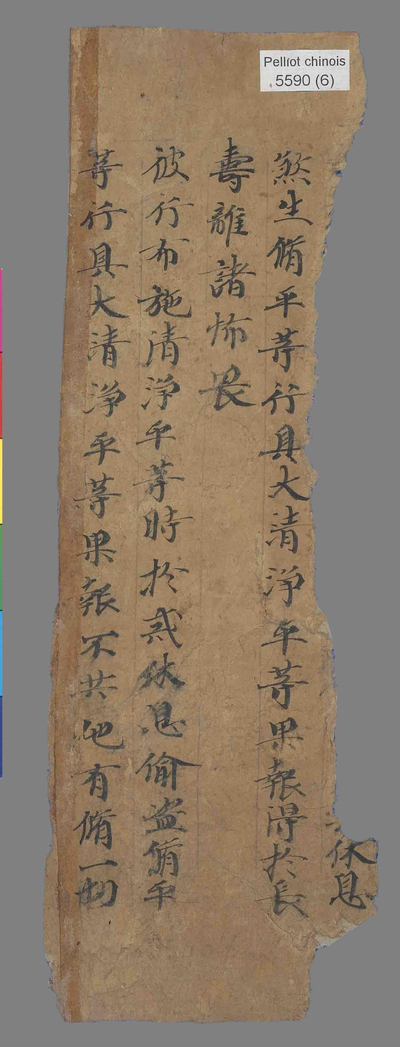 Pelliot chinois
5590 (6)
休息
煞生脩平等行具大清淨平等果報得扵長
壽離諸怖畏
彼行布施清淨平等時扵戒休息偷盜脩平
等行具大清淨平等果報不共他有脩一切